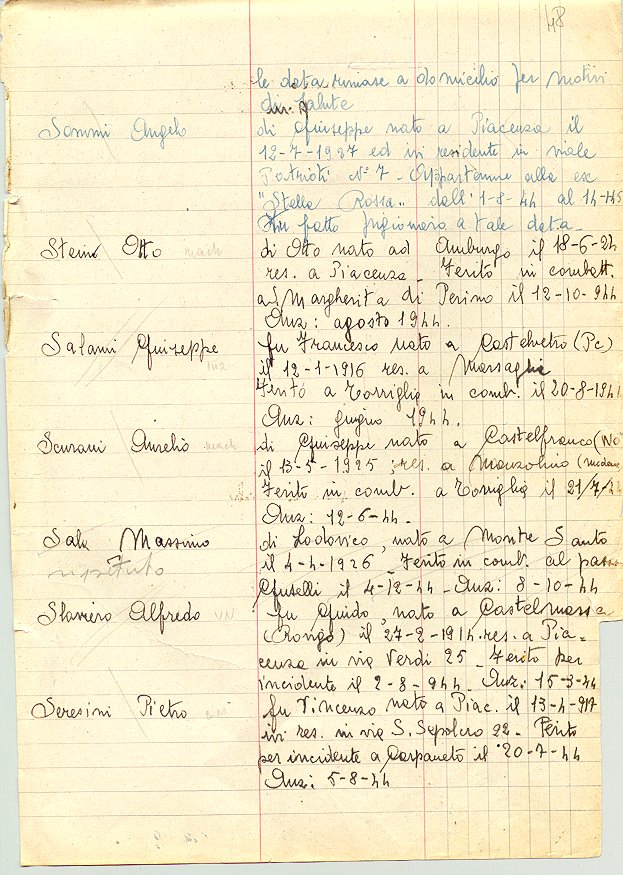 48
le data rimase a domicilio per motivi
di salute
Sommi Angelo di Giuseppe nato a Piacenza il
12-7-1927 ed ivi residente in viale
Patrioti N° 7 - Appartenne alla ex
"Stella Rossa" dall' 1-8-44 al 14-1-45
fatto prigioniero a tale data -
Stein Otto di Otto nato ad Amburgo il 18-6-24
res. a Piacenza - Ferito in combatt.
ad Margherita di Perino il 12-10-944
Anz: agosto 1944.
Salami Giuseppe fu Francesco nato a Castelvetro (Pc)
il 12-1-1916 res. a Marsaglia
Ferito a Torriglia in comb. il 20-8-1944
Anz: giugno 1944.
Scurani Aurelio di Giuseppe nato a Castelfranco
il 13-5-1925; res. a Manzolino
Ferito in comb. a Torriglia il 21/7/44
Anz: 12-6-44-
Sala Massimo di Lodovico, nato a Monte Santo
ripetuto il 4-4-1926 - Ferito in comb. al passo
Guselli il 4-12-44 - Anz: 8-10-44
Slaviero Alfredo VN fu Guido, nato a Castelmassa
(Rovigo) il 27-2-1914. res. a Pia-
cenza in via Verdi 25 - Ferito per
incidente il 2-8-944 Anz: 15-3-44
Seresini Pietro fu Vincenzo nato a Piac. il 13-4-917
ivi res. in via S. Sepolcro 22 - Ferito
per incidente a Carpaneto il 20-7-44
Anz: 5-8-44